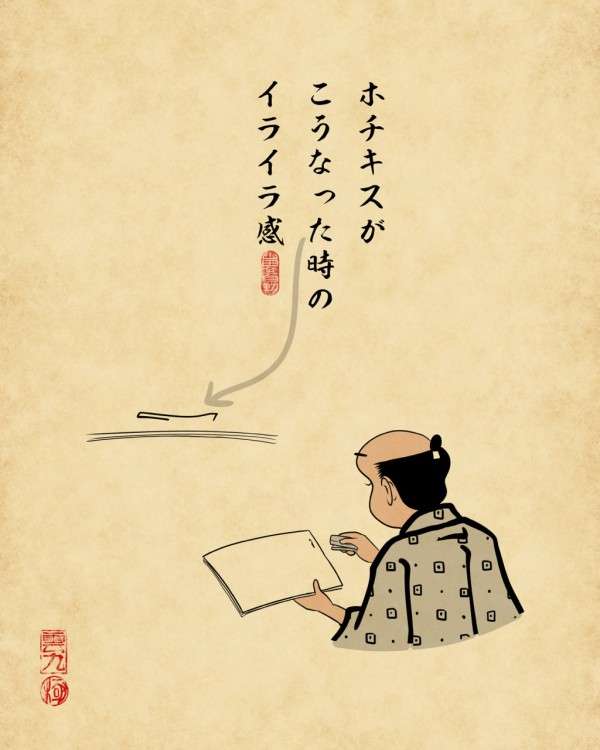 ホチキスが
こうなった時の
イライラ感